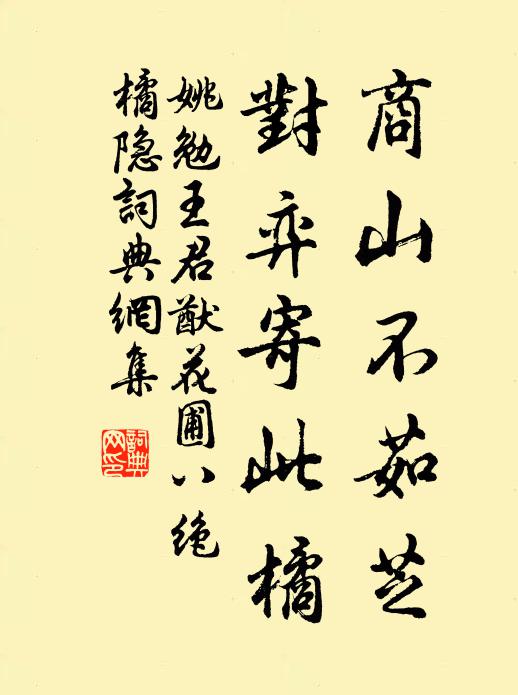 商山不茹芝
對弈寄此橘
姚勉王君猷花圃八绝
橘隐詞典網集
詞典
网印